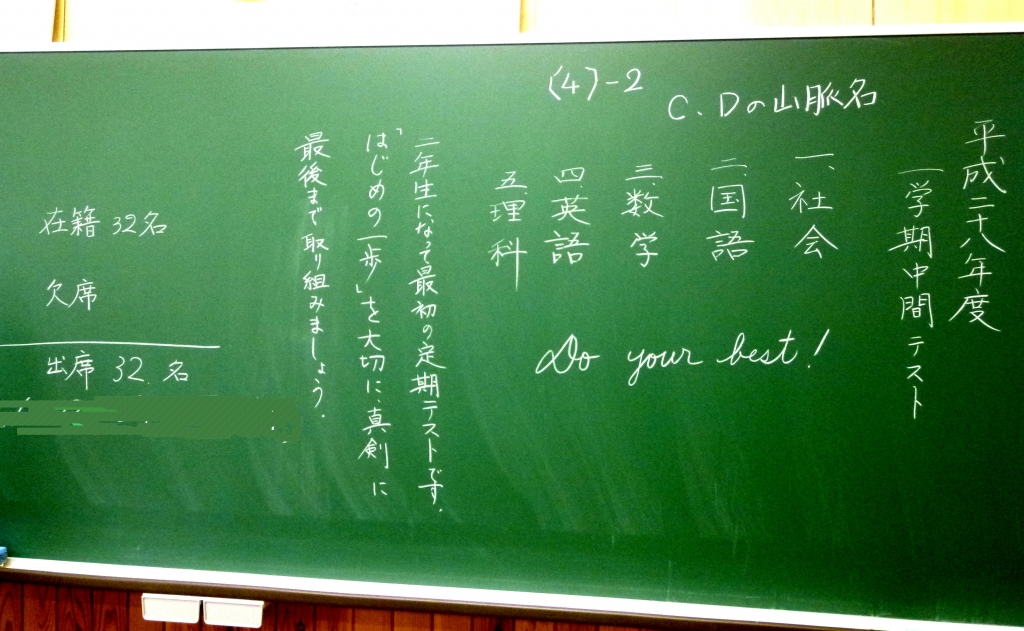 平成二十八年度
一学期中間テスト
(4)-2
C、Dの山脈名
一、社会
二、国語
三、数学
四、英語
五、理科
Do your best!
二年生になって最初の定期テストです。
「はじめの一歩」を大切に、真剣に
最後まで取り組みましょう。
在籍 32名
欠席
出席 32名